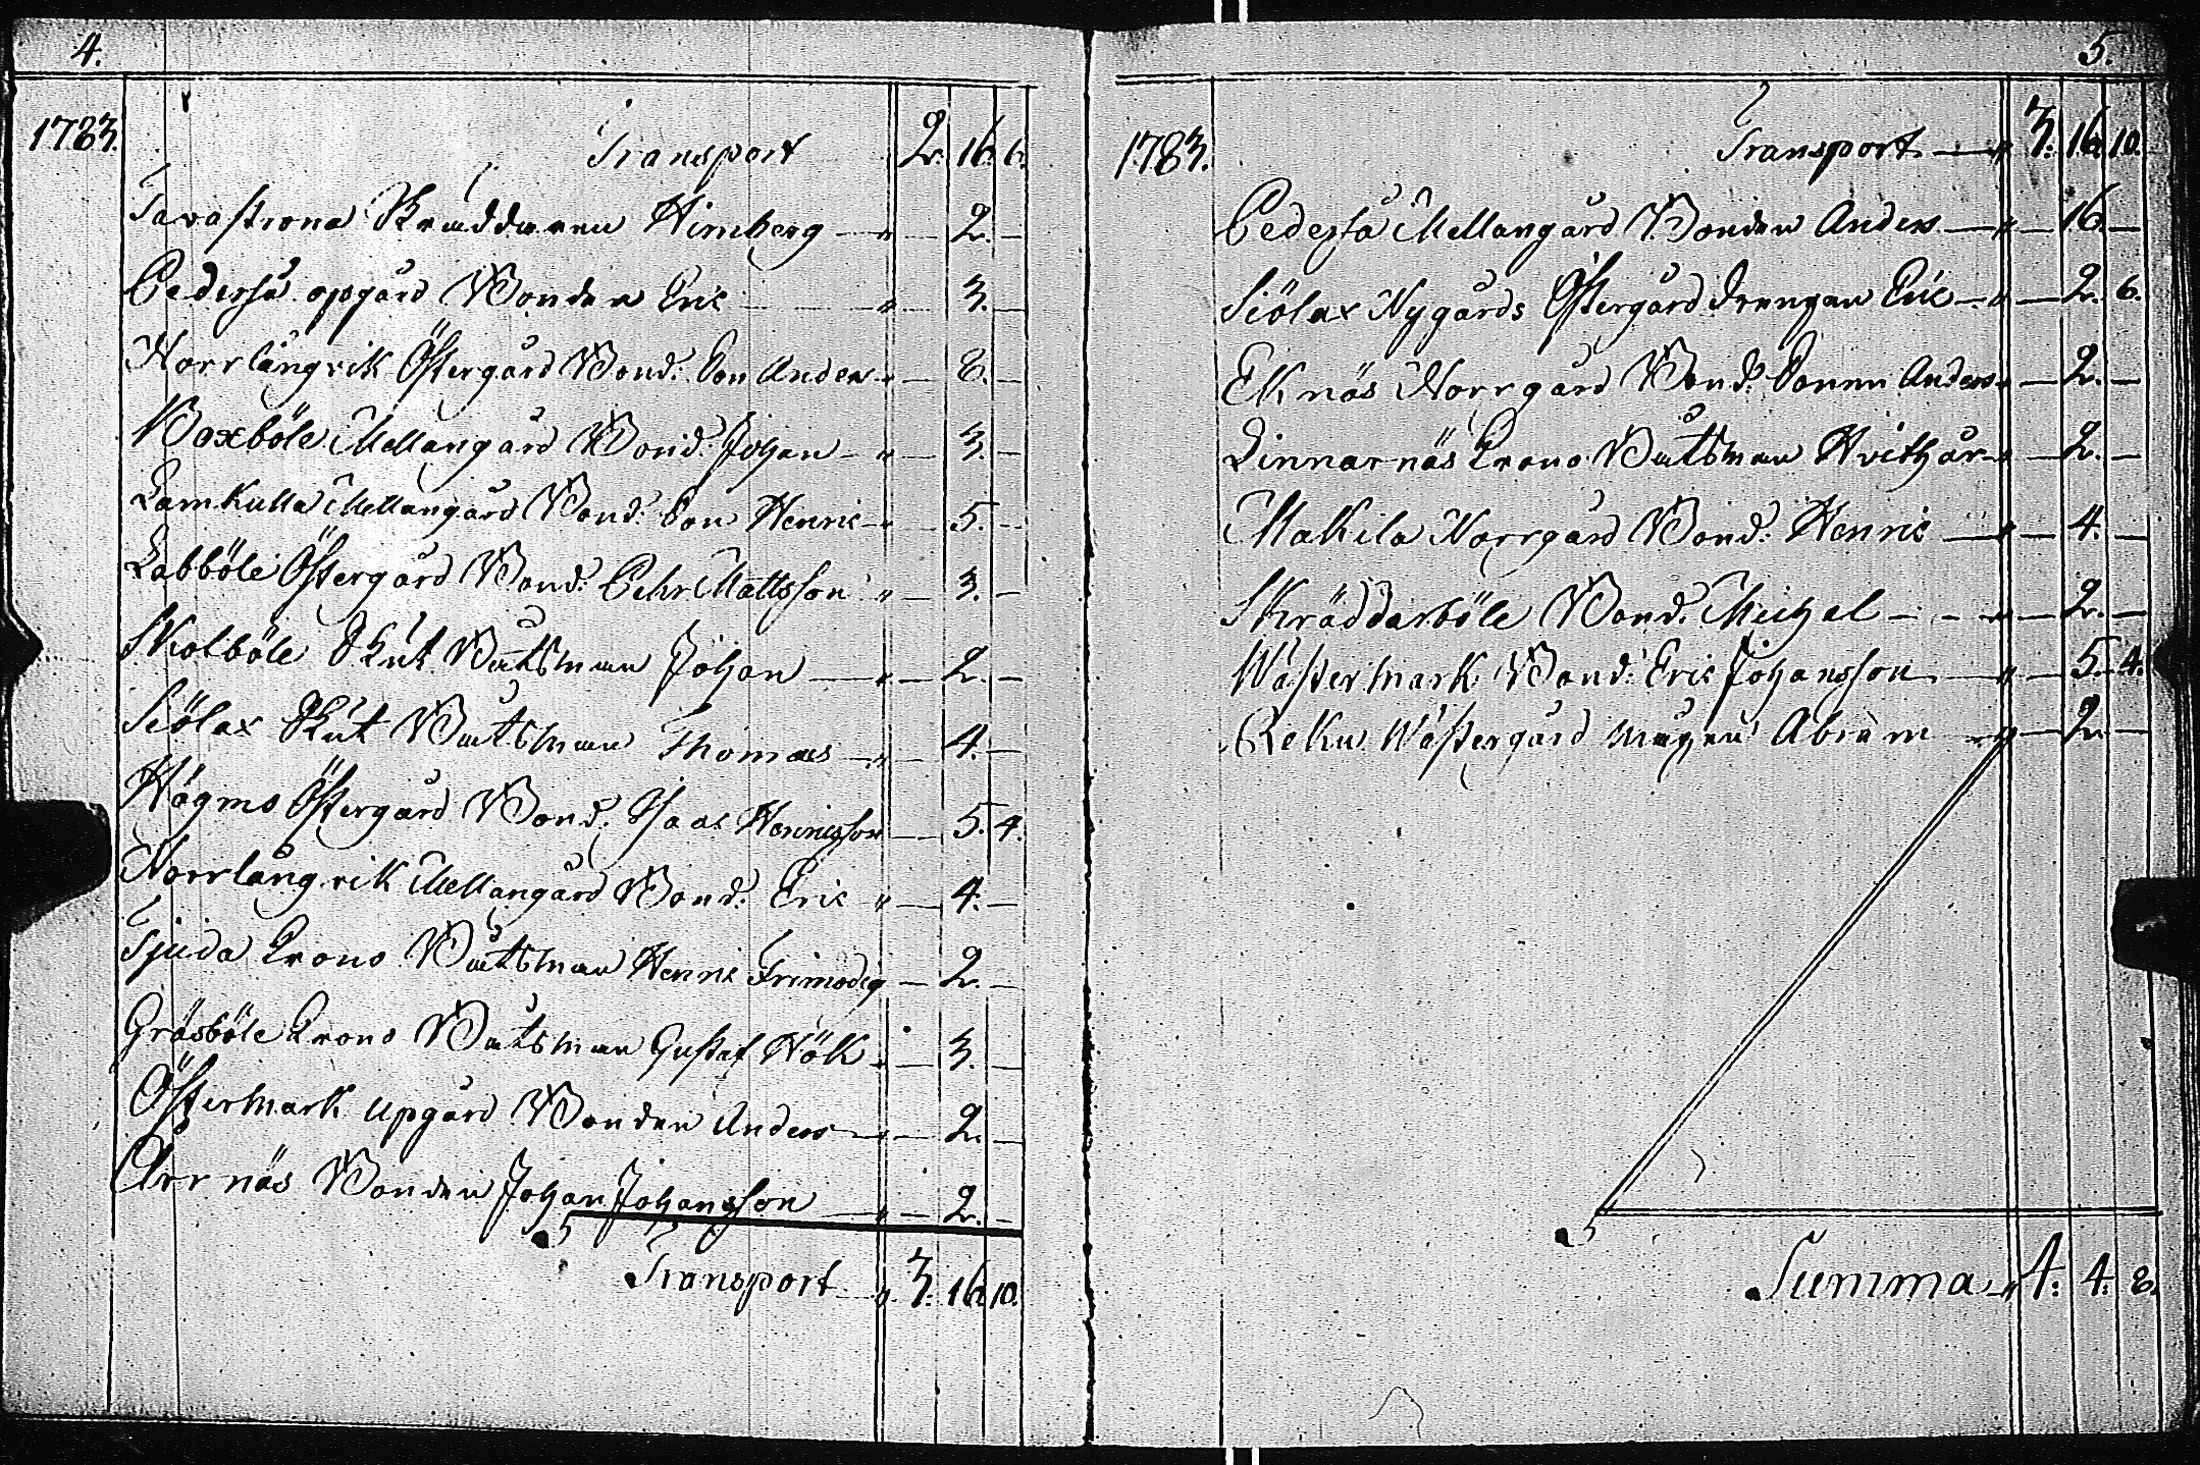 4.
1783.
Transport 2. 16. 6.
Tavastrona Skräddaren Himberg — " — 2. —
Pederså opgård Bonden Eric " 3. —
Norrlångvik Östergård Bond. Son Anders " — 8. —
Boxböle Mellangård Bond. Johan — " — 3. —
Lamkulla Mellangård Bond. Son Henric — " — 5. —
Labböle Östergård Bond. Pehr Mattsson " — 3. —
Skolböle Skut Båtsman Johan — " — 2. —
Siölax Skut Båtsman Thomas — " — 4. —
Högmo Östergård Bond. Isaac Henricsson — 5. 4.
Norrlångvik Mellangård Bond. Eric " — 4. —
Tjuda Crono Båtsman Henric Frimodig — 2. —
Gräsböle Crono Båtsman Gustaf Hök " — 3. —
Östermark upgård Bonden Anders — " — 2. —
Arnäs Bonden Johan Johansson — " — 2. —
Transport " 3. 16. 10.
5.
1783.
Transport — " 3. 16. 10.
Pederså Mellangård Bonden Anders — " — 16. —
Siölax Nygårds Östergård drengen Eric — " — 2. 6.
Eknäs Norrgård Bond. Sonen Anders " — 2. —
Linnarnäs Crono Båtsman Hvithår " — 2. —
Makila Norrgård Bond. Henric — " — 4. —
Skräddarböle Bond. Michel — " — 2. —
Wästermark Bond. Eric Johansson — " — 5. 4.
Reku Wästergård mågen Abram — " — 2. —
Summa " 4. 4. 8.